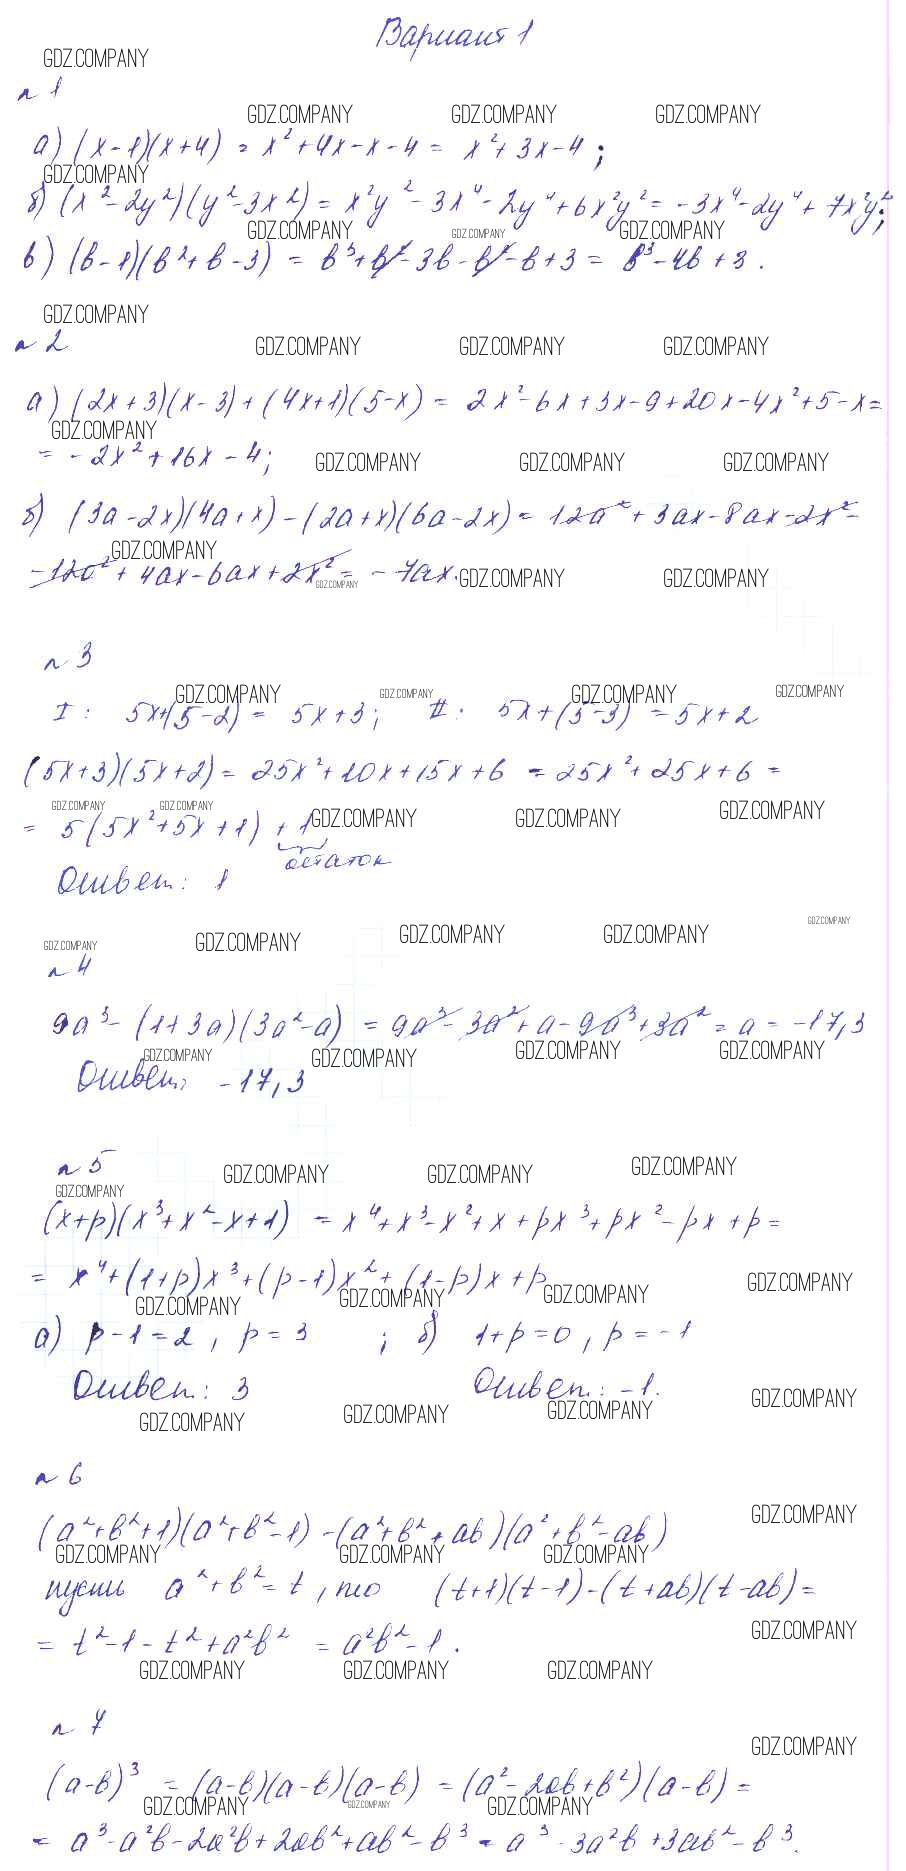 Вариант 1
GDZ.COMPANY
n 1
GDZ.COMPANY GDZ.COMPANY GDZ.COMPANY
а) (x-1)(x+4) = x²+4x-x-4 = x²+3x-4;
GDZ.COMPANY
б) (x²-2y²)(y²-3x²) = x²y²-3x⁴-2y⁴+6x²y² = -3x⁴-2y⁴+7x²y²;
GDZ.COMPANY GDZ.COMPANY GDZ.COMPANY
в) (b-1)(b²+b-3) = b³+b²-3b-b²-b+3 = b³-4b+3.
GDZ.COMPANY
n 2
GDZ.COMPANY GDZ.COMPANY GDZ.COMPANY
а) (2x+3)(x-3)+(4x+1)(5-x) = 2x²-6x+3x-9+20x-4x²+5-x=
GDZ.COMPANY
= -2x²+16x-4;
GDZ.COMPANY GDZ.COMPANY GDZ.COMPANY
б) (3a-2x)(4a+x)-(2a+x)(6a-2x) = 12a²+3ax-8ax-2x²-
GDZ.COMPANY
-12a²+4ax-6ax+2x² = -7ax.
GDZ.COMPANY GDZ.COMPANY GDZ.COMPANY
n 3
GDZ.COMPANY GDZ.COMPANY GDZ.COMPANY GDZ.COMPANY
I: 5x+(5-2) = 5x+3; II: 5x+(5-3) = 5x+2
(5x+3)(5x+2) = 25x²+10x+15x+6 = 25x²+25x+6 =
GDZ.COMPANY GDZ.COMPANY GDZ.COMPANY GDZ.COMPANY GDZ.COMPANY
= 5(5x²+5x+1)+1
остаток
Ответ: 1
GDZ.COMPANY GDZ.COMPANY GDZ.COMPANY GDZ.COMPANY GDZ.COMPANY
n 4
9a³-(1+3a)(3a²-a) = 9a³-3a²+a-9a³+3a² = a = -17,3
GDZ.COMPANY GDZ.COMPANY GDZ.COMPANY GDZ.COMPANY
Ответ: -17,3
n 5
GDZ.COMPANY GDZ.COMPANY GDZ.COMPANY GDZ.COMPANY
(x+p)(x³+x²-x+1) = x⁴+x³-x²+x+px³+px²-px+p=
= x⁴+(1+p)x³+(p-1)x²+(1-p)x+p
GDZ.COMPANY GDZ.COMPANY GDZ.COMPANY GDZ.COMPANY
а) p-1=2, p=3 ; б) 1+p=0, p=-1
Ответ: 3 Ответ: -1.
GDZ.COMPANY GDZ.COMPANY GDZ.COMPANY GDZ.COMPANY
n 6
(a²+b²+1)(a²+b²-1)-(a²+b²+ab)(a²+b²-ab)
GDZ.COMPANY
GDZ.COMPANY GDZ.COMPANY GDZ.COMPANY
пусть a²+b²=t, то (t+1)(t-1)-(t+ab)(t-ab)=
= t²-1-t²+a²b² = a²b²-1.
GDZ.COMPANY
GDZ.COMPANY GDZ.COMPANY GDZ.COMPANY
n 7
GDZ.COMPANY
(a-b)³ = (a-b)(a-b)(a-b) = (a²-2ab+b²)(a-b) =
GDZ.COMPANY GDZ.COMPANY GDZ.COMPANY
= a³-a²b-2a²b+2ab²+ab²-b³ = a³-3a²b+3ab²-b³.